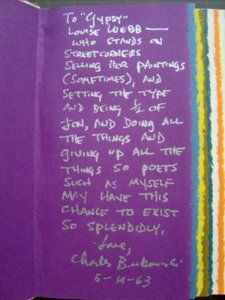 To "GYPSY"
LOUISE WEBB —
WHO STANDS ON
STREETCORNERS
SELLING HER PAINTINGS
(SOMETIMES), AND
SETTING THE TYPE
AND BEING ½ OF
JON, AND DOING ALL
THE THINGS AND
GIVING UP ALL THE
THINGS SO POETS
SUCH AS MYSELF
MAY HAVE THIS
CHANCE TO EXIST
SO SPLENDIDLY.
Love,
Charles Bukowski
5-19-63